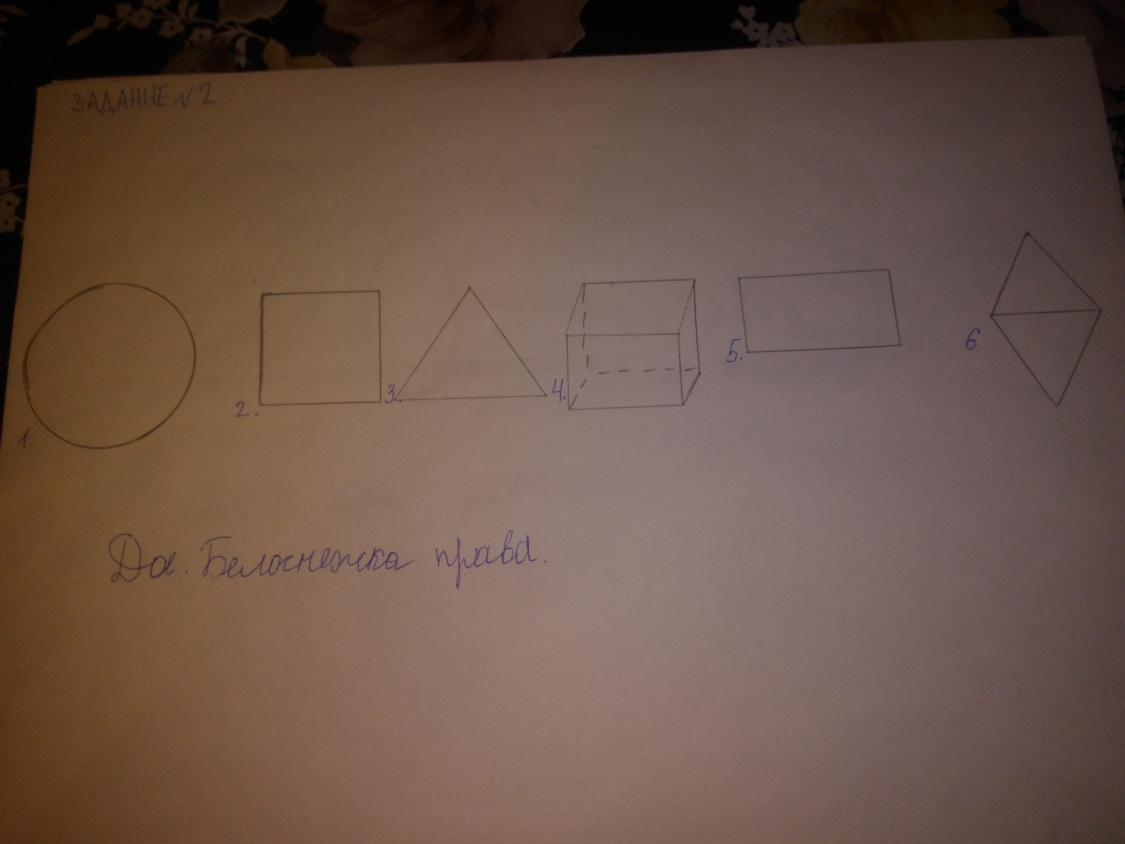 ЗАДАНИЕ №2.
1. 2. 3. 4. 5. 6
Да. Белоснежка права.